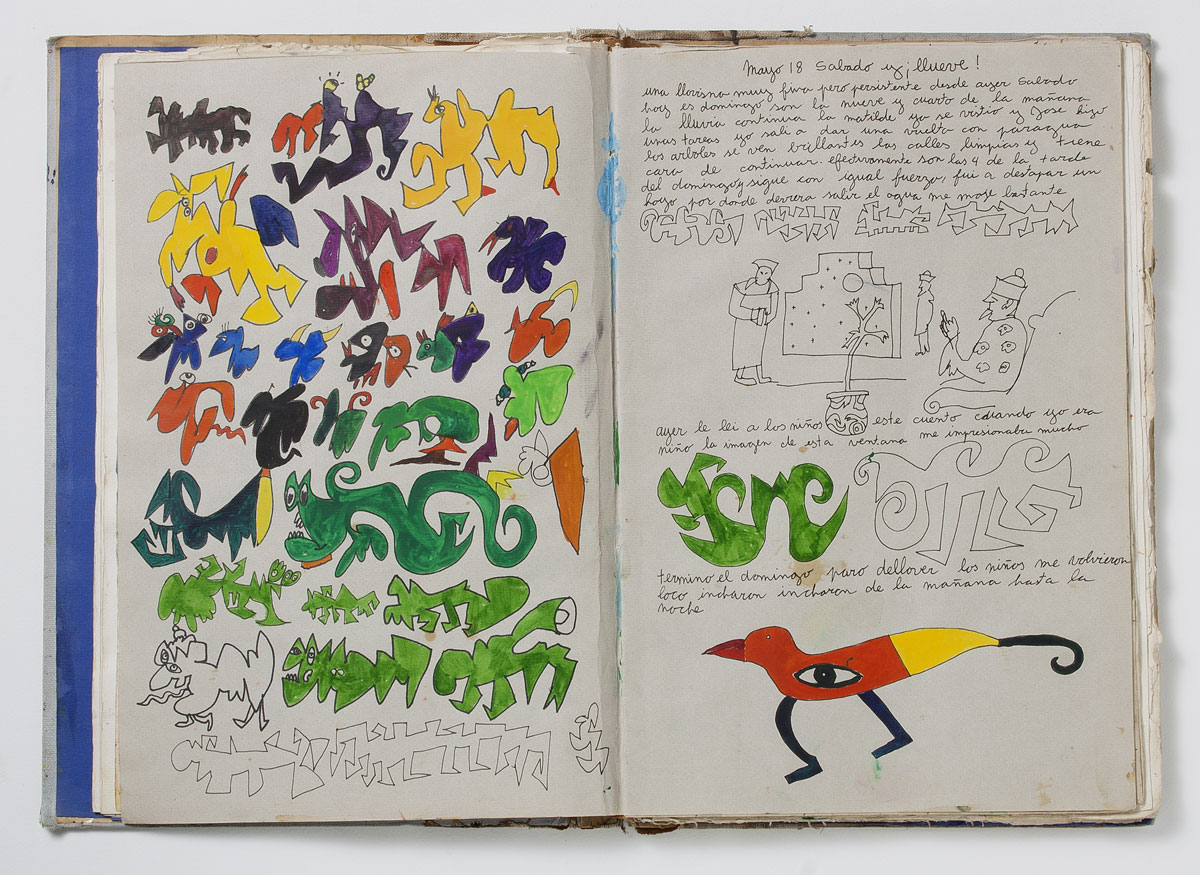 Mayo 18 Sabado y ¡llueve!
una llovisna muy fina pero persistente desde ayer Sabado
hoy es domingo son la nueve y cuarto de la mañana
la lluvia continua la matilde ya se vistio y Jose hizo
unas tareas yo sali a dar una vuelta con paragua
los arboles se ven brillantes las calles limpias y tiene
cara de continuar. efectivamente son las 4 de la tarde
del domingo y sigue con igual fuerza, fui a destapar un
hoyo por donde devera salir el agua me moje bastante
ayer le lei a los niños este cuento cuando yo era
niño la imagen de esta ventana me impresionaba mucho
termino el domingo paro dellover los niños me volvieron
loco incharon incharon de la mañana hasta la
noche